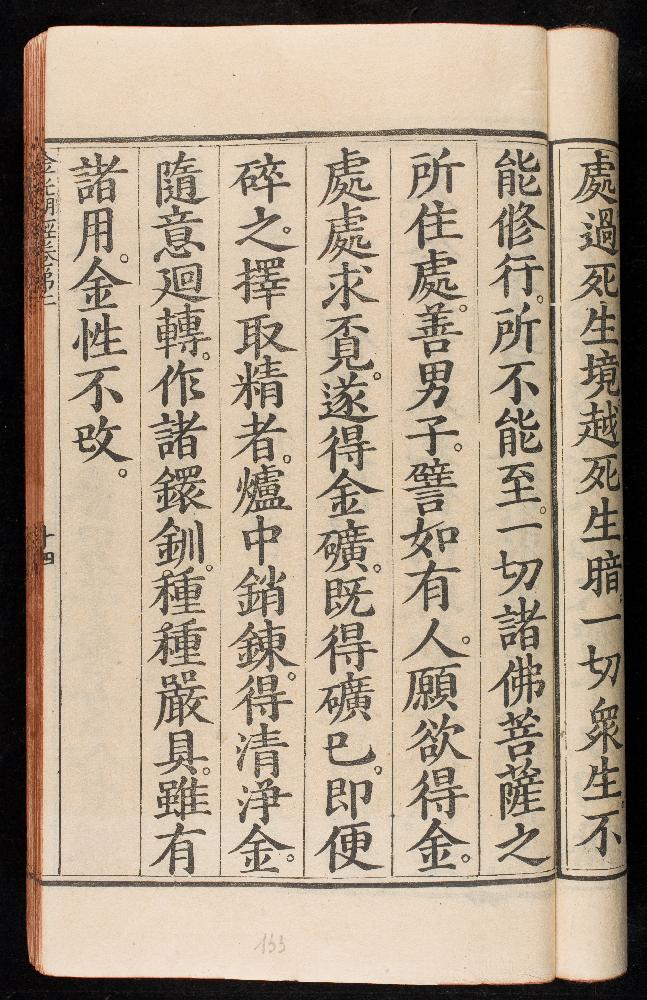 處過死生境越死生暗一切衆生不
能修行。所不能至。一切諸佛菩薩之
所住處。善男子。譬如有人。願欲得金。
處處求覓。遂得金礦。既得礦已。即便
碎之。擇取精者。爐中銷鍊。得清淨金。
隨意迴轉。作諸鐶釧。種種嚴具。雖有
諸用。金性不改。
金光明經卷第二
十四
155